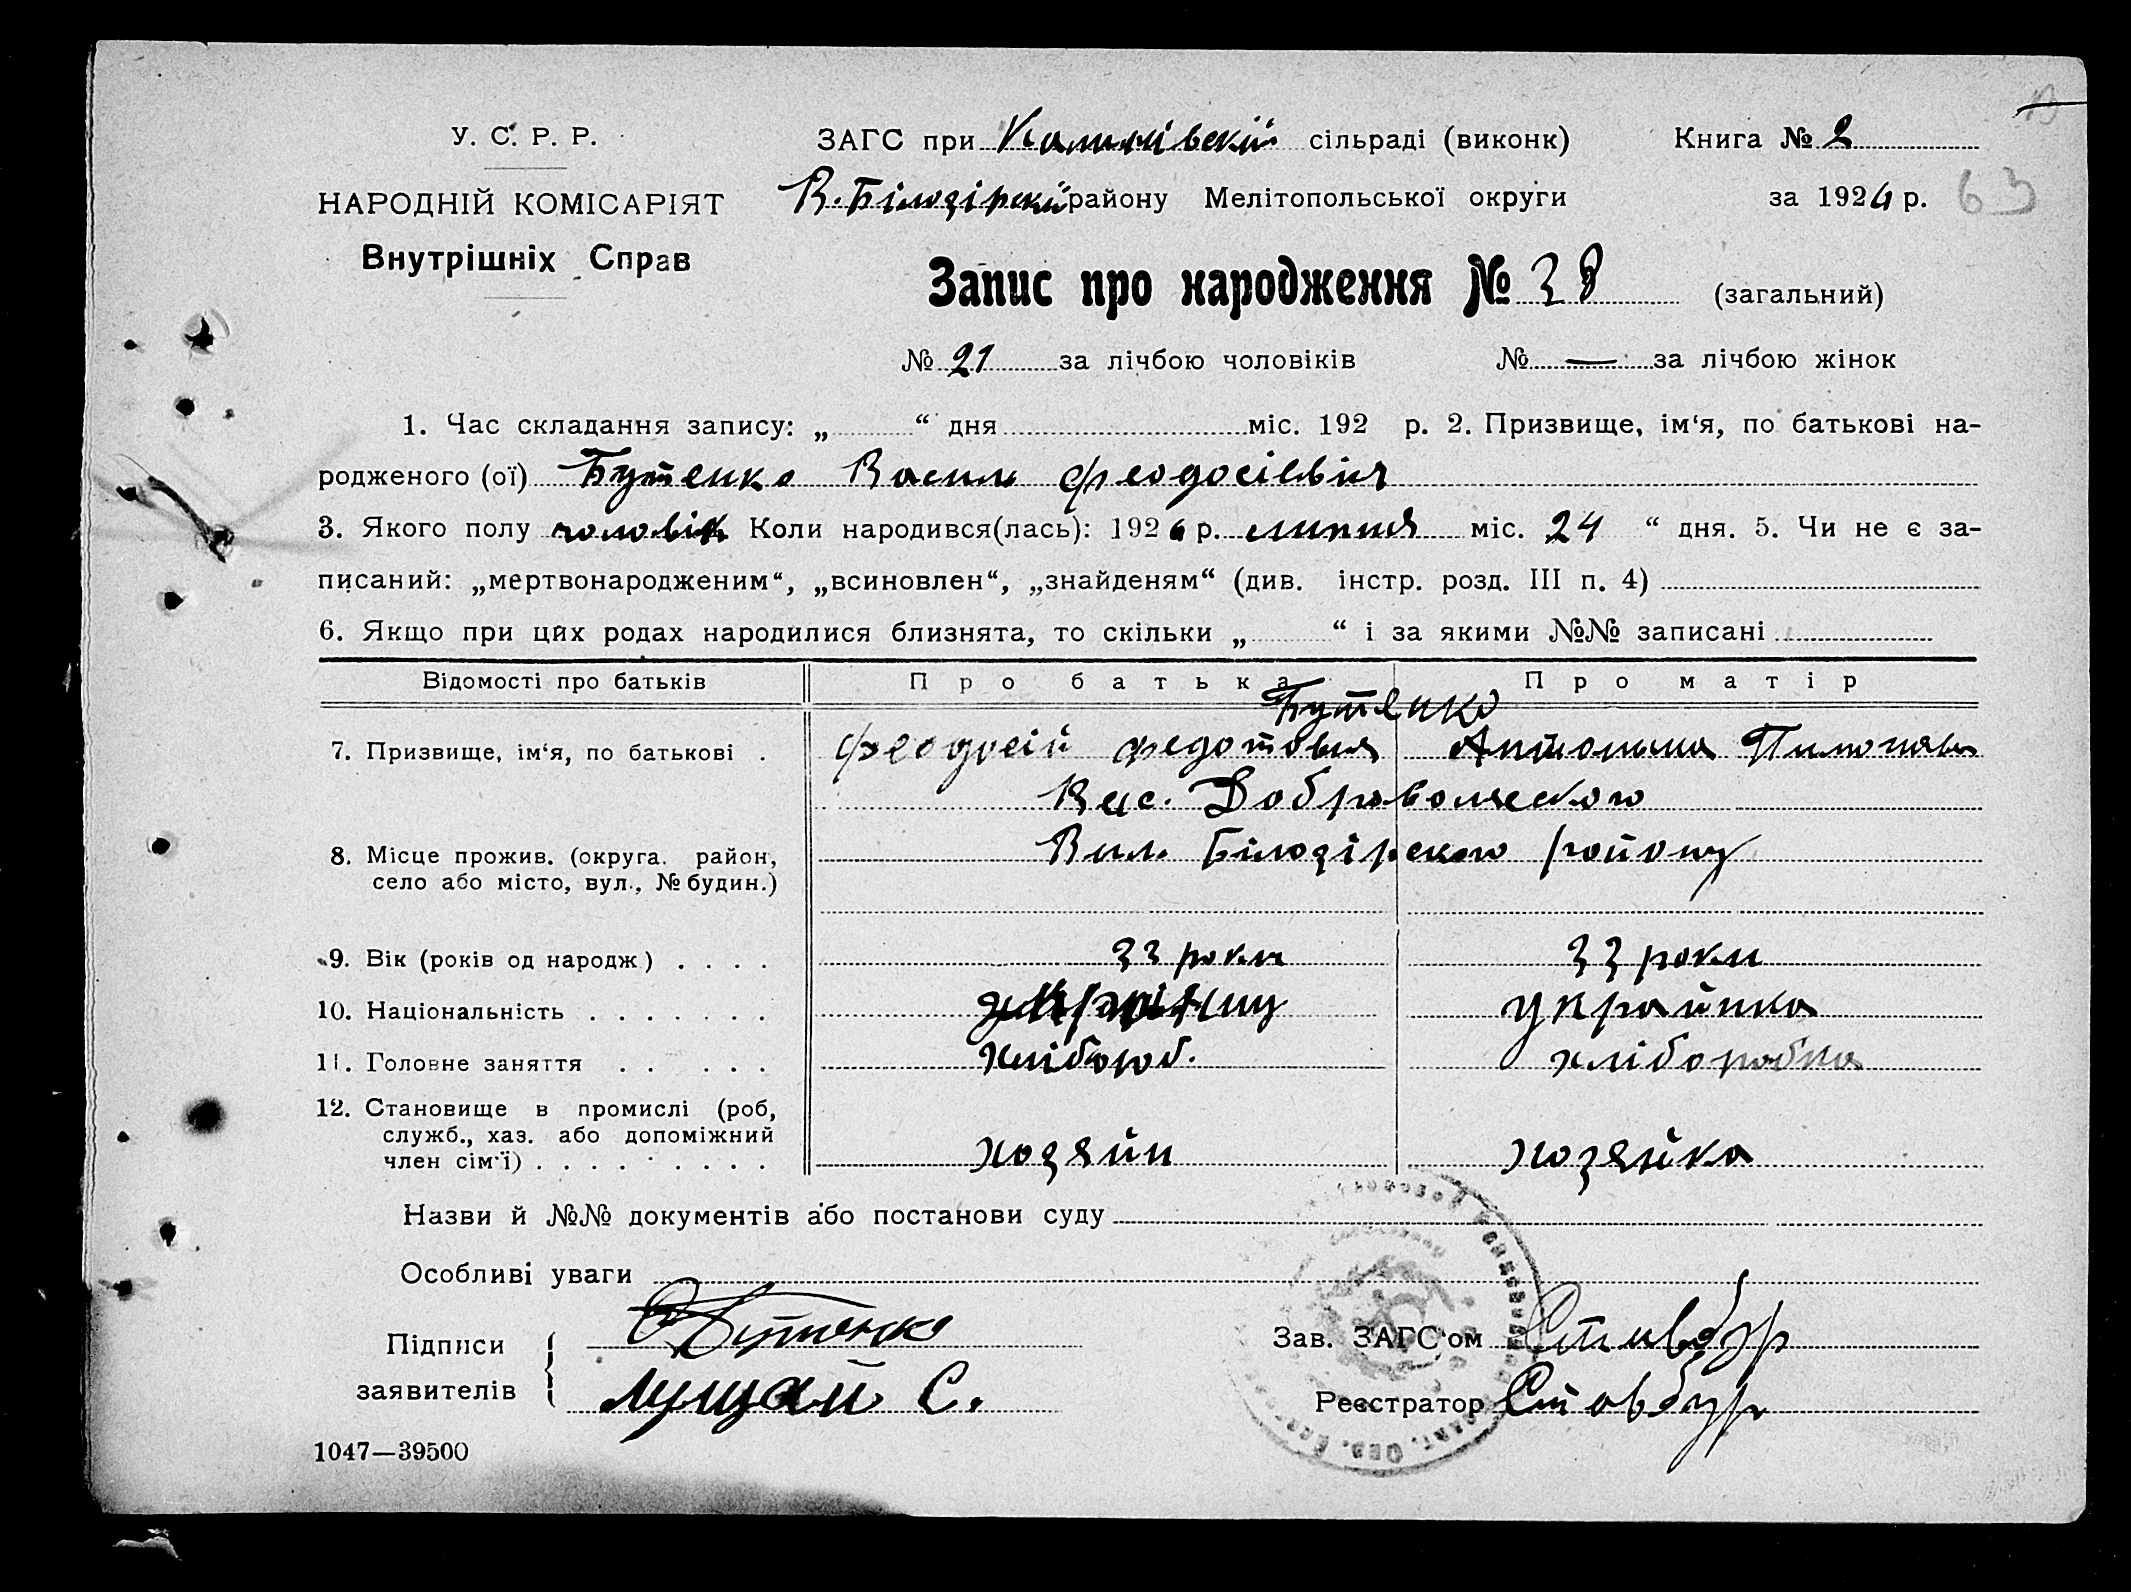 У. С. Р. Р.
НАРОДНІЙ КОМІСАРІЯТ
Внутрішніх Справ
ЗАГС при сільраді (виконк) Книга № 2
В. Білозірскій району Мелітопольської округи за 192 р. 63
Запис про народження № 38 (загальний)
№ 21 за лічбою чоловіків № — за лічбою жінок
1. Час складання запису: „ “ дня міс. 192 р. 2. Призвище, ім‘я, по батькові на-
родженого (ої) Бутенко Василь Феодосіевич
3. Якого полу чоловік Коли народився(лась): 1926 р. липня міс. 24 “ дня. 5. Чи не є за-
писаний: „мертвонародженим“, „всиновлен“, „знайденям“ (див. інстр. розд. III п. 4)
6. Якщо при цих родах народилися близнята, то скільки „ “ і за якими №№ записані
Відомості про батьків Про батька Про матір
Бутенко
7. Призвище, ім‘я, по батькові . Феодосій Федотович
Добровольского
8. Місце прожив. (округа. район, Вил. Білозірского району
село або місто, вул., № будин.)
9. Вік (років од народж) . . . . 33 роки 33 роки
10. Національність . . . . . . . українка
11. Головне заняття . . . . . хлібороб. хлібопобка
12. Становище в промислі (роб,
служб., хаз. або допоміжний
член сім‘ї) . . . . . . . . . хозяйн хозяйка
Назви й №№ документів або постанови суду
Особливі уваги
Підписи Бутенко Зав. ЗАГС‘ом Стовбур
заявителів Лущай С. Реєстратор Стовбур
1047—39500